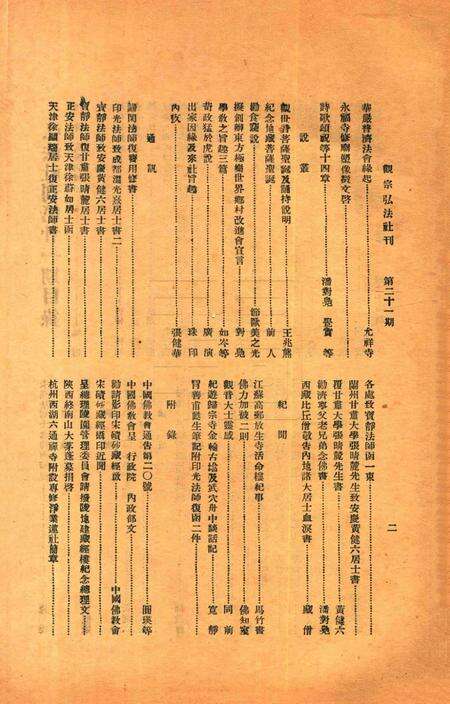 觀宗弘法社刊　第二十一期　二
華嚴普濟法會緣起……尤祥寺
永福寺修廟塑像募文啓
詩歌頌祝等十四章……潘對鳧　覺實　等
說叢
觀世音菩薩聖誕及誦持說明……王兆熊
紀念地藏菩薩聖誕……前人
勸食葷說……節歐美之光
擬創辦東方極樂世界鄉村改進會宣言……對鳧
學教之旨趣三篇……如岑等
苛政猛於虎說……廣演
出家因緣及來社旨趣……珠印
內疚……張健華
通訊
諦閑法師復費用修書
印光法師致成都溫光熹居士書二
寶靜法師致安慶黃健六居士書
寶靜法師復甘肅張晴麓居士書
正安法師致天津徐蔚如居士函
天津徐蔚如居士復正安法師書
各處致寶靜法師函一束
蘭州甘肅大學張晴麓先生致安慶黃健六居士書
覆甘肅大學張晴麓先生書……黃健六
勸濟專父老兄弟念佛書……潘對鳧
西藏比丘僧敬告內地諸大居士血淚書……藏僧
紀聞
江蘇高郵放生寺活命樓紀事……馬竹書
佛力加被二則……佛知室
觀音大士靈感……同前
紀遊歸宗寺金輪古塔及武穴舟中談話記……寬靜
胃善甫甦生筆記附印光法師復函二件
附錄
中國佛教會通告第二〇號……圓瑛等
中國佛教會呈　行政院　內政部文
勸請影印宋磧砂藏經啟……中國佛教會
宋磧砂藏經攝印近聞
呈總理陵園管理委員會請撥陵地建藏經樓紀念總理文
陝西終南山大茅蓬募捐啓
杭州西湖六通禪寺附設專修淨業蓮社簡章